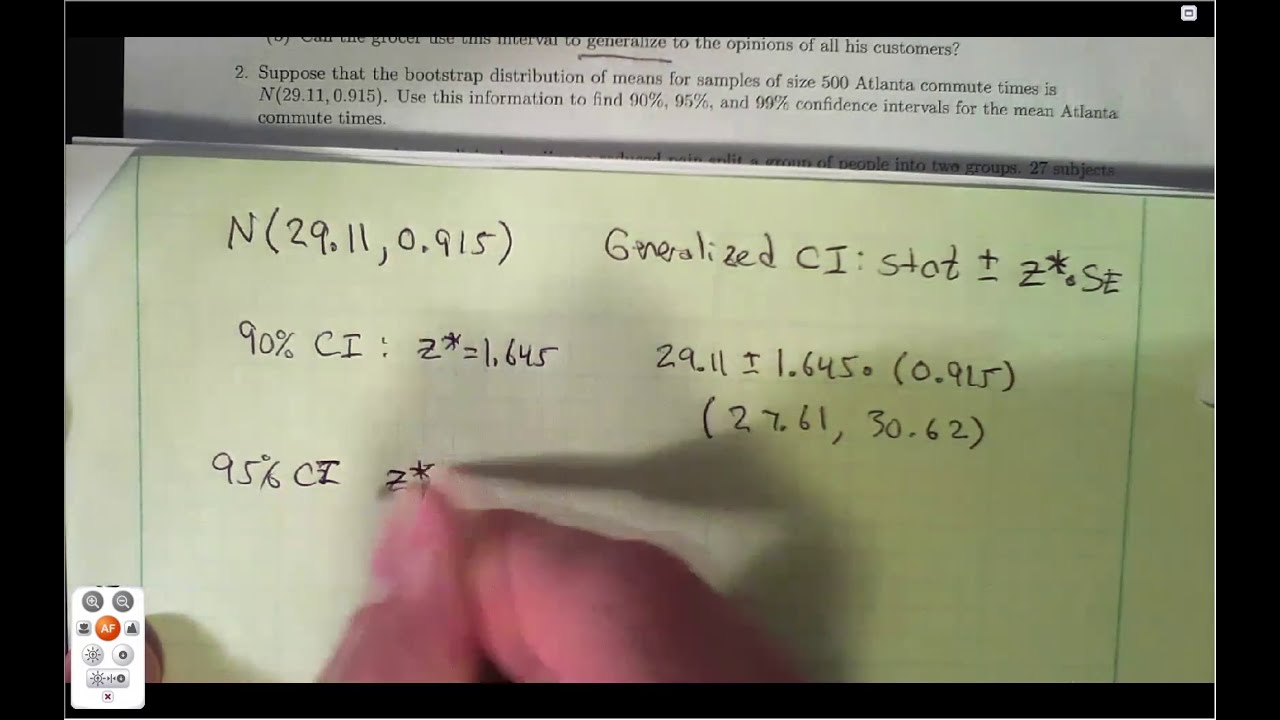 (b) Can the grocer use this interval to generalize to the opinions of all his customers?
2. Suppose that the bootstrap distribution of means for samples of size 500 Atlanta commute times is
N(29.11, 0.915). Use this information to find 90%, 95%, and 99% confidence intervals for the mean Atlanta
commute times.
pain split a group of people into two groups. 27 subjects
N(29.11, 0.915)
Generalized CI: stat ± z*•SE
90% CI: z*=1.645
29.11 ± 1.645•(0.915)
(27.61, 30.62)
95% CI z*
AF